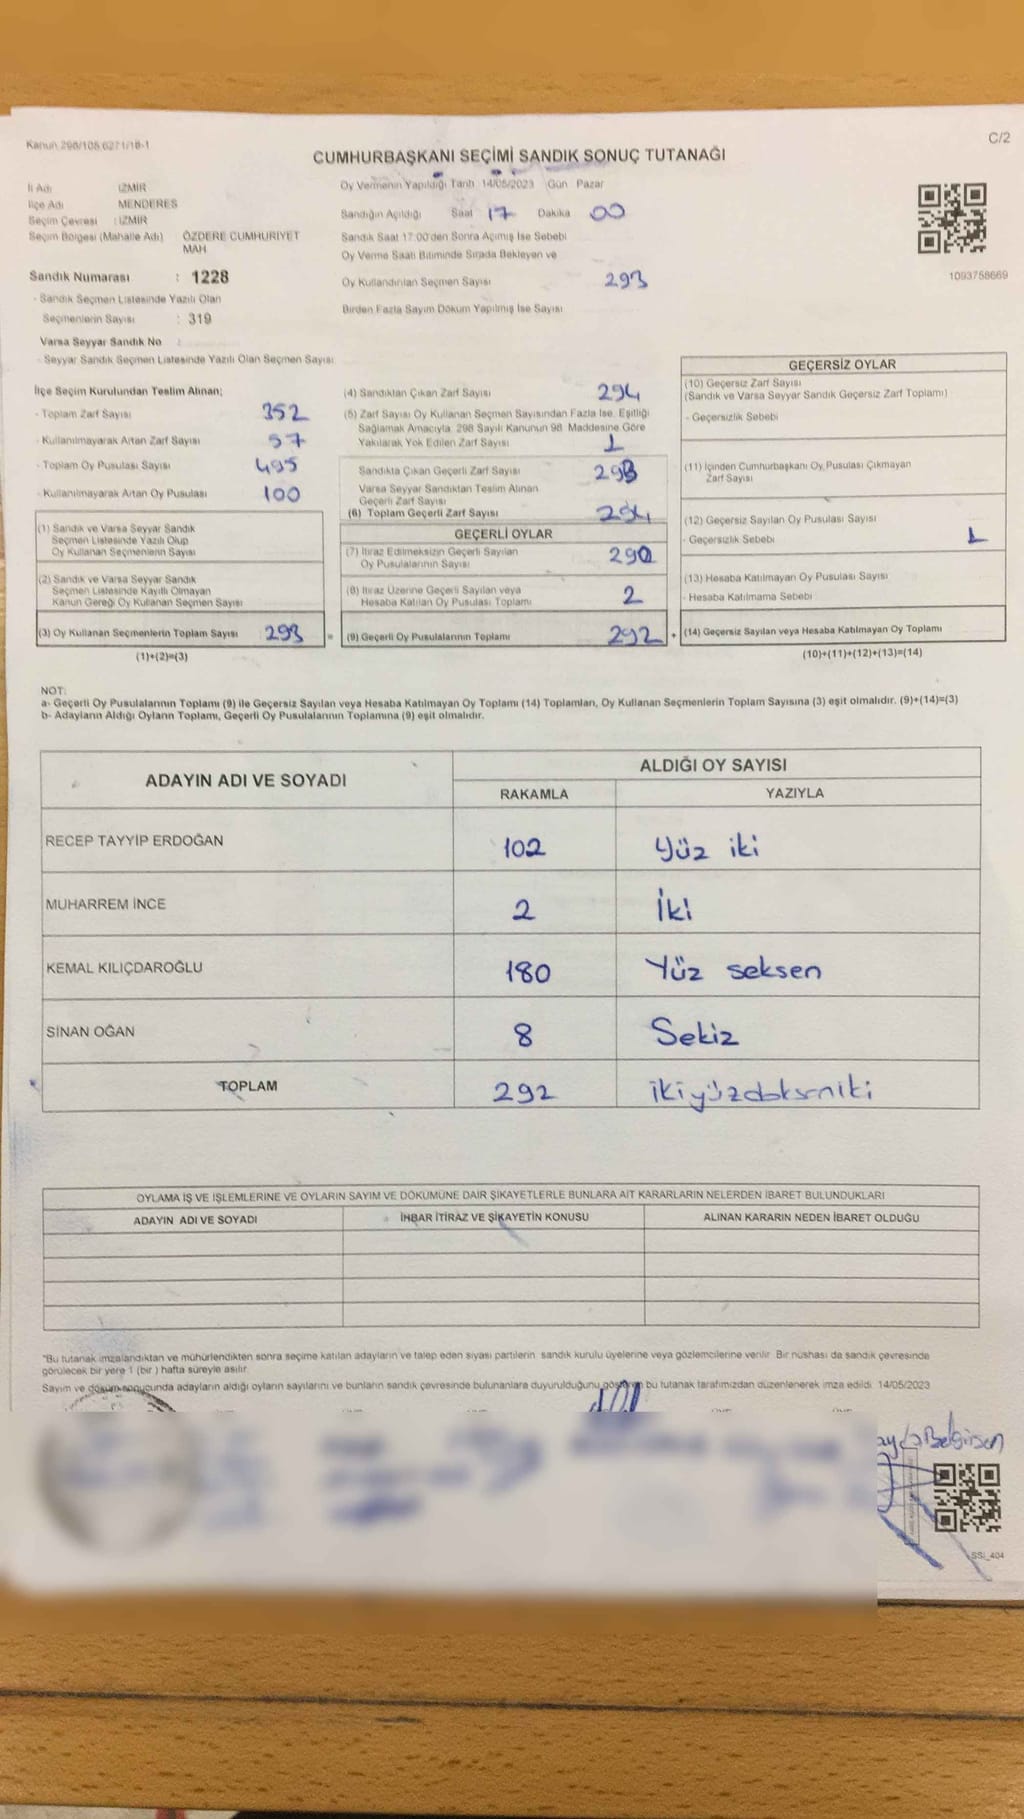 Kanun 298/105,6271/18-1
C/2
CUMHURBAŞKANI SEÇİMİ SANDIK SONUÇ TUTANAĞI
İl Adı İZMİR
İlçe Adı MENDERES
Seçim Çevresi : İZMİR
Seçim Bölgesi (Mahalle Adı) ÖZDERE CUMHURİYET
MAH
Sandık Numarası : 1228
- Sandık Seçmen Listesinde Yazılı Olan
Seçmenlerin Sayısı : 319
Varsa Seyyar Sandık No :
- Seyyar Sandık Seçmen Listesinde Yazılı Olan Seçmen Sayısı
Oy Vermenin Yapıldığı Tarih 14/05/2023 Gün Pazar
Sandığın Açıldığı Saat 17 Dakika 00
Sandık Saat 17:00'den Sonra Açılmış İse Sebebi
Oy Verme Saati Bitiminde Sırada Bekleyen ve
Oy Kullandırılan Seçmen Sayısı 293
Birden Fazla Sayım Döküm Yapılmış İse Sayısı
1093758669
İlçe Seçim Kurulundan Teslim Alınan;
- Toplam Zarf Sayısı 352
- Kullanılmayarak Artan Zarf Sayısı 57
- Toplam Oy Pusulası Sayısı 495
- Kullanılmayarak Artan Oy Pusulası 100
(1) Sandık ve Varsa Seyyar Sandık
Seçmen Listesinde Yazılı Olup
Oy Kullanan Seçmenlerin Sayısı
(2) Sandık ve Varsa Seyyar Sandık
Seçmen Listesinde Kayıtlı Olmayan
Kanun Gereği Oy Kullanan Seçmen Sayısı
(3) Oy Kullanan Seçmenlerin Toplam Sayısı 293 =
(1)+(2)=(3)
(4) Sandıktan Çıkan Zarf Sayısı 294
(5) Zarf Sayısı Oy Kullanan Seçmen Sayısından Fazla İse, Eşitliği
Sağlamak Amacıyla, 298 Sayılı Kanunun 98. Maddesine Göre
Yakılarak Yok Edilen Zarf Sayısı 1
Sandıkta Çıkan Geçerli Zarf Sayısı 293
Varsa Seyyar Sandıktan Teslim Alınan
Geçerli Zarf Sayısı
(6) Toplam Geçerli Zarf Sayısı 294
GEÇERLİ OYLAR
(7) İtiraz Edilmeksizin Geçerli Sayılan
Oy Pusulalarının Sayısı 290
(8) İtiraz Üzerine Geçerli Sayılan veya
Hesaba Katılan Oy Pusulası Toplamı 2
(9) Geçerli Oy Pusulalarının Toplamı 292 +
GEÇERSİZ OYLAR
(10) Geçersiz Zarf Sayısı
(Sandık ve Varsa Seyyar Sandık Geçersiz Zarf Toplamı)
- Geçersizlik Sebebi
(11) İçinden Cumhurbaşkanı Oy Pusulası Çıkmayan
Zarf Sayısı
(12) Geçersiz Sayılan Oy Pusulası Sayısı
- Geçersizlik Sebebi 1
(13) Hesaba Katılmayan Oy Pusulası Sayısı
- Hesaba Katılmama Sebebi
(14) Geçersiz Sayılan veya Hesaba Katılmayan Oy Toplamı
(10)+(11)+(12)+(13)=(14)
NOT:
a- Geçerli Oy Pusulalarının Toplamı (9) ile Geçersiz Sayılan veya Hesaba Katılmayan Oy Toplamı (14) Toplamları, Oy Kullanan Seçmenlerin Toplam Sayısına (3) eşit olmalıdır. (9)+(14)=(3)
b- Adayların Aldığı Oyların Toplamı, Geçerli Oy Pusulalarının Toplamına (9) eşit olmalıdır.
ADAYIN ADI VE SOYADI ALDIĞI OY SAYISI
RAKAMLA YAZIYLA
RECEP TAYYİP ERDOĞAN 102 Yüz iki
MUHARREM İNCE 2 İki
KEMAL KILIÇDAROĞLU 180 Yüz seksen
SİNAN OĞAN 8 Sekiz
TOPLAM 292 ikiyüzdoksaniki
OYLAMA İŞ VE İŞLEMLERİNE VE OYLARIN SAYIM VE DÖKÜMÜNE DAİR ŞİKAYETLERLE BUNLARA AİT KARARLARIN NELERDEN İBARET BULUNDUKLARI
ADAYIN ADI VE SOYADI İHBAR İTİRAZ VE ŞİKAYETİN KONUSU ALINAN KARARIN NEDEN İBARET OLDUĞU
"Bu tutanak imzalandıktan ve mühürlendikten sonra seçime katılan adayların ve talep eden siyasi partilerin, sandık kurulu üyelerine veya gözlemcilerine verilir. Bir nüshası da sandık çevresinde
görülecek bir yere 1 (bir) hafta süreyle asılır.
Sayım ve döküm sonucunda adayların aldığı oyların sayılarını ve bunların sandık çevresinde bulunanlara duyurulduğunu gösteren bu tutanak tarafımızdan düzenlenerek imza edildi. 14/05/2023
SSİ_404